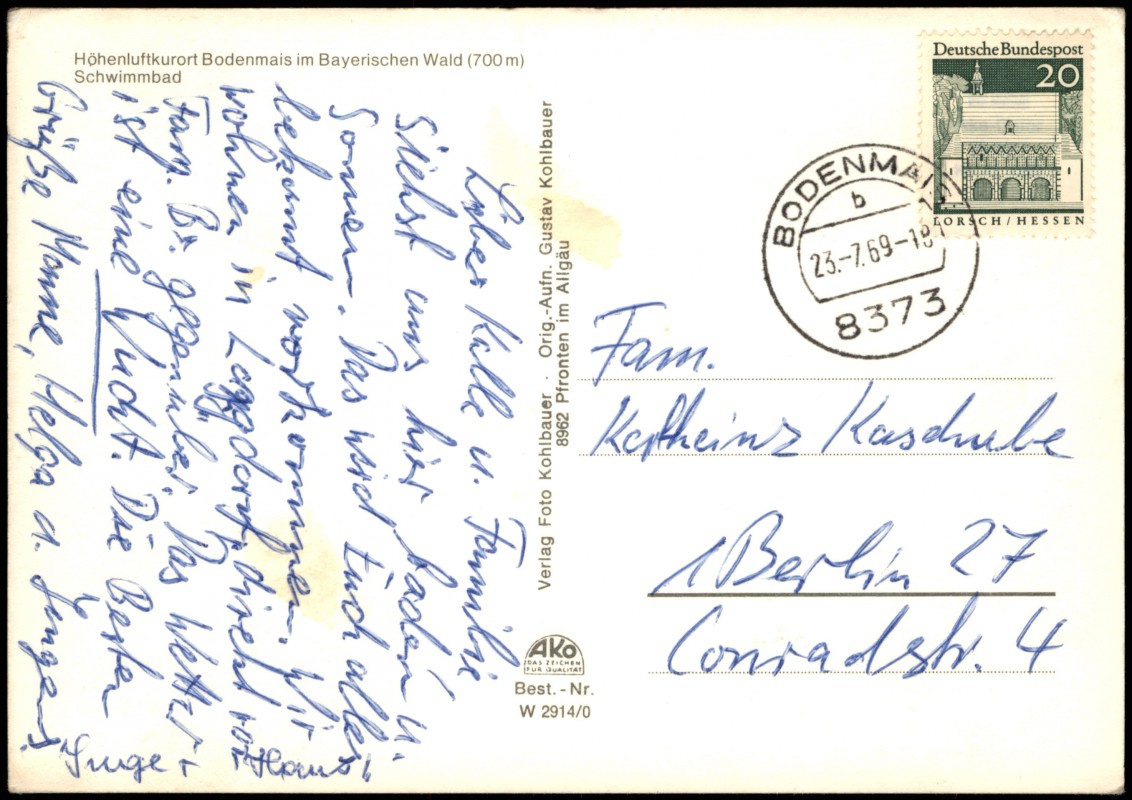 Höhenluftkurort Bodenmais im Bayerischen Wald (700 m)
Schwimmbad
Lieber Kalle u. Familie
Siehst uns hier baden u.
Sonnen. Das wird Euch alles
bekannt vorkommen. Wir
wohnen in direkt vor
Fam. B. gegenüber. Das Wetter
ist eine Wucht. Die Besten
Grüße Manne, Helga u. Jürgen!
Inge + Hans!
Verlag Foto Kohlbauer · Orig.-Aufn. Gustav Kohlbauer
8962 Pfronten im Allgäu
AKO
DAS ZEICHEN
FÜR QUALITÄT
Best.-Nr.
W 2914/0
Deutsche Bundespost
20
LORSCH/HESSEN
BODENMAIS
b
23.-7.69-18
8373
Fam.
Karlheinz Kaschube
1 Berlin 27
Conradstr. 4